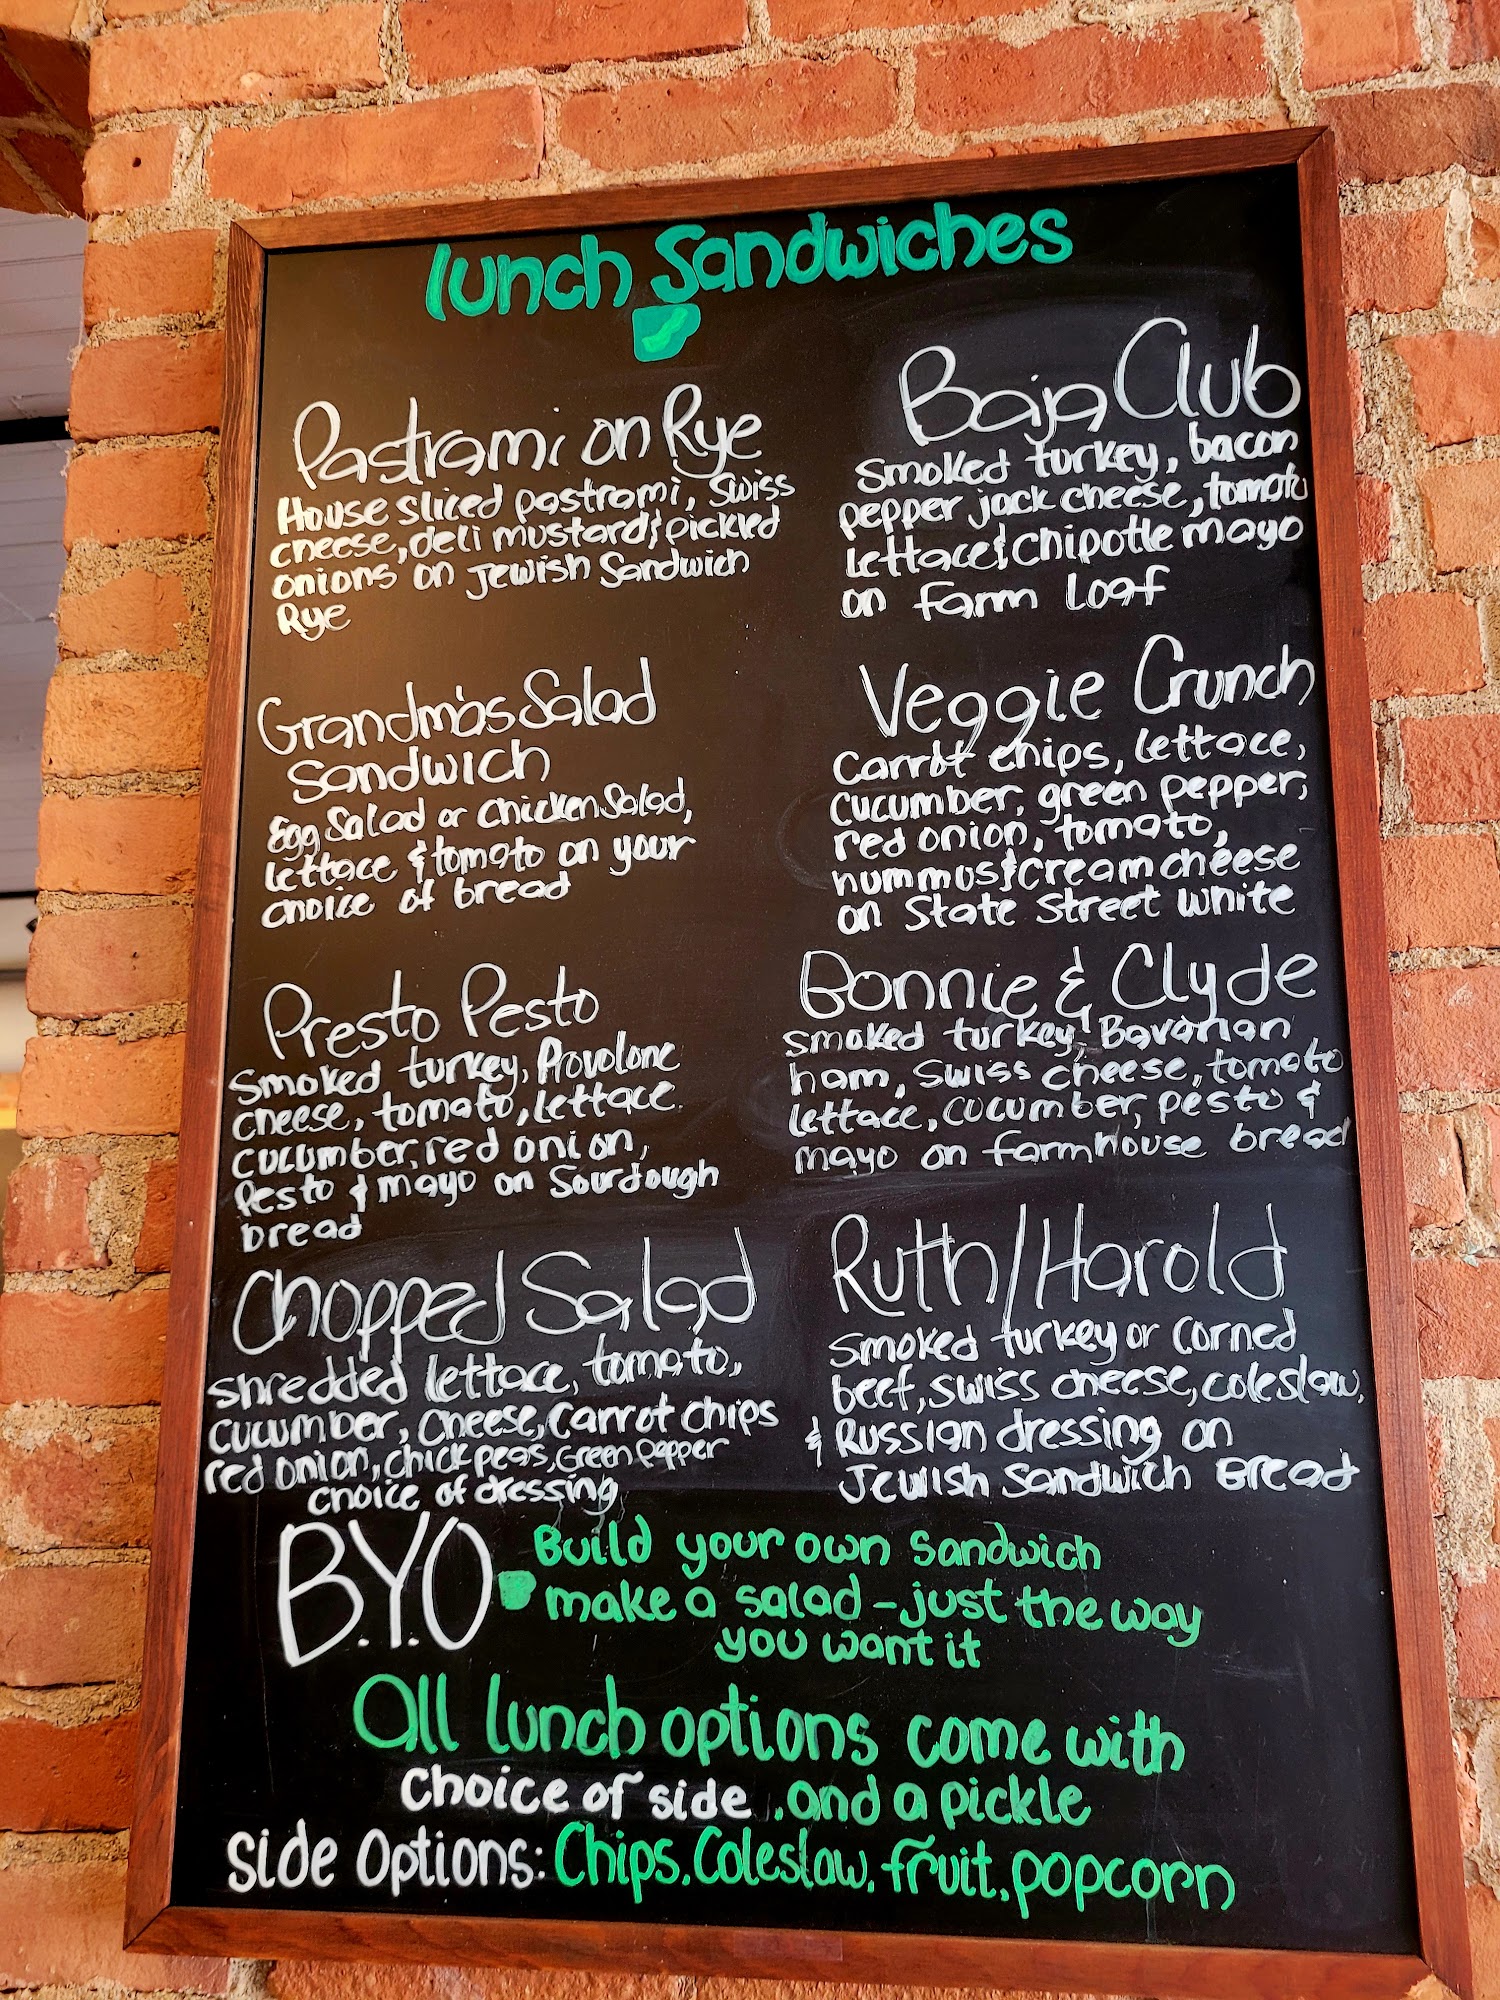 lunch Sandwiches
Pastrami on Rye
House sliced pastrami, Swiss
cheese, deli mustard & pickled
onions on Jewish Sandwich
Rye
Grandma's Salad
Sandwich
Egg Salad or Chicken Salad,
lettace & tomato on your
choice of bread
Presto Pesto
Smoked turkey, Provolone
cheese, tomato, lettace
cucumber, red onion,
Pesto & mayo on Sourdough
bread
Chopped Salad
shredded lettace, tomato,
cucumber, cheese, carrot chips
red onion, chick peas, Green Pepper
choice of dressing
Baja Club
Smoked turkey, bacon
pepper jack cheese, tomato
lettace & chipotle mayo
on farm loaf
Veggie Crunch
Carrot chips, lettace,
cucumber, green pepper,
red onion, tomato,
hummus & cream cheese
on State Street White
Bonnie & Clyde
Smoked turkey, Bavarian
ham, Swiss cheese, tomato
lettace, cucumber, pesto &
mayo on farmhouse bread
Ruth/Harold
Smoked turkey or corned
beef, swiss cheese, coleslaw,
& Russian dressing on
Jewish Sandwich Bread
B.Y.O
Build your own sandwich
make a salad - just the way
you want it
All lunch options come with
choice of side, and a pickle
Side Options: Chips, Coleslaw, fruit, popcorn